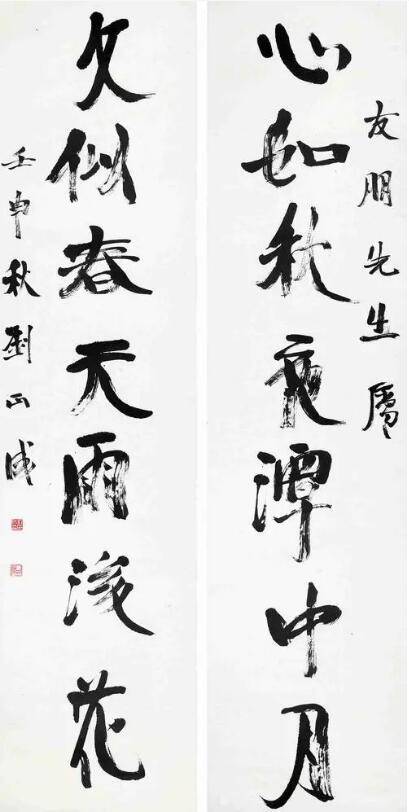 友朋先生属
心如秋夜潭中月
文似春天雨後花
壬申秋劉正成